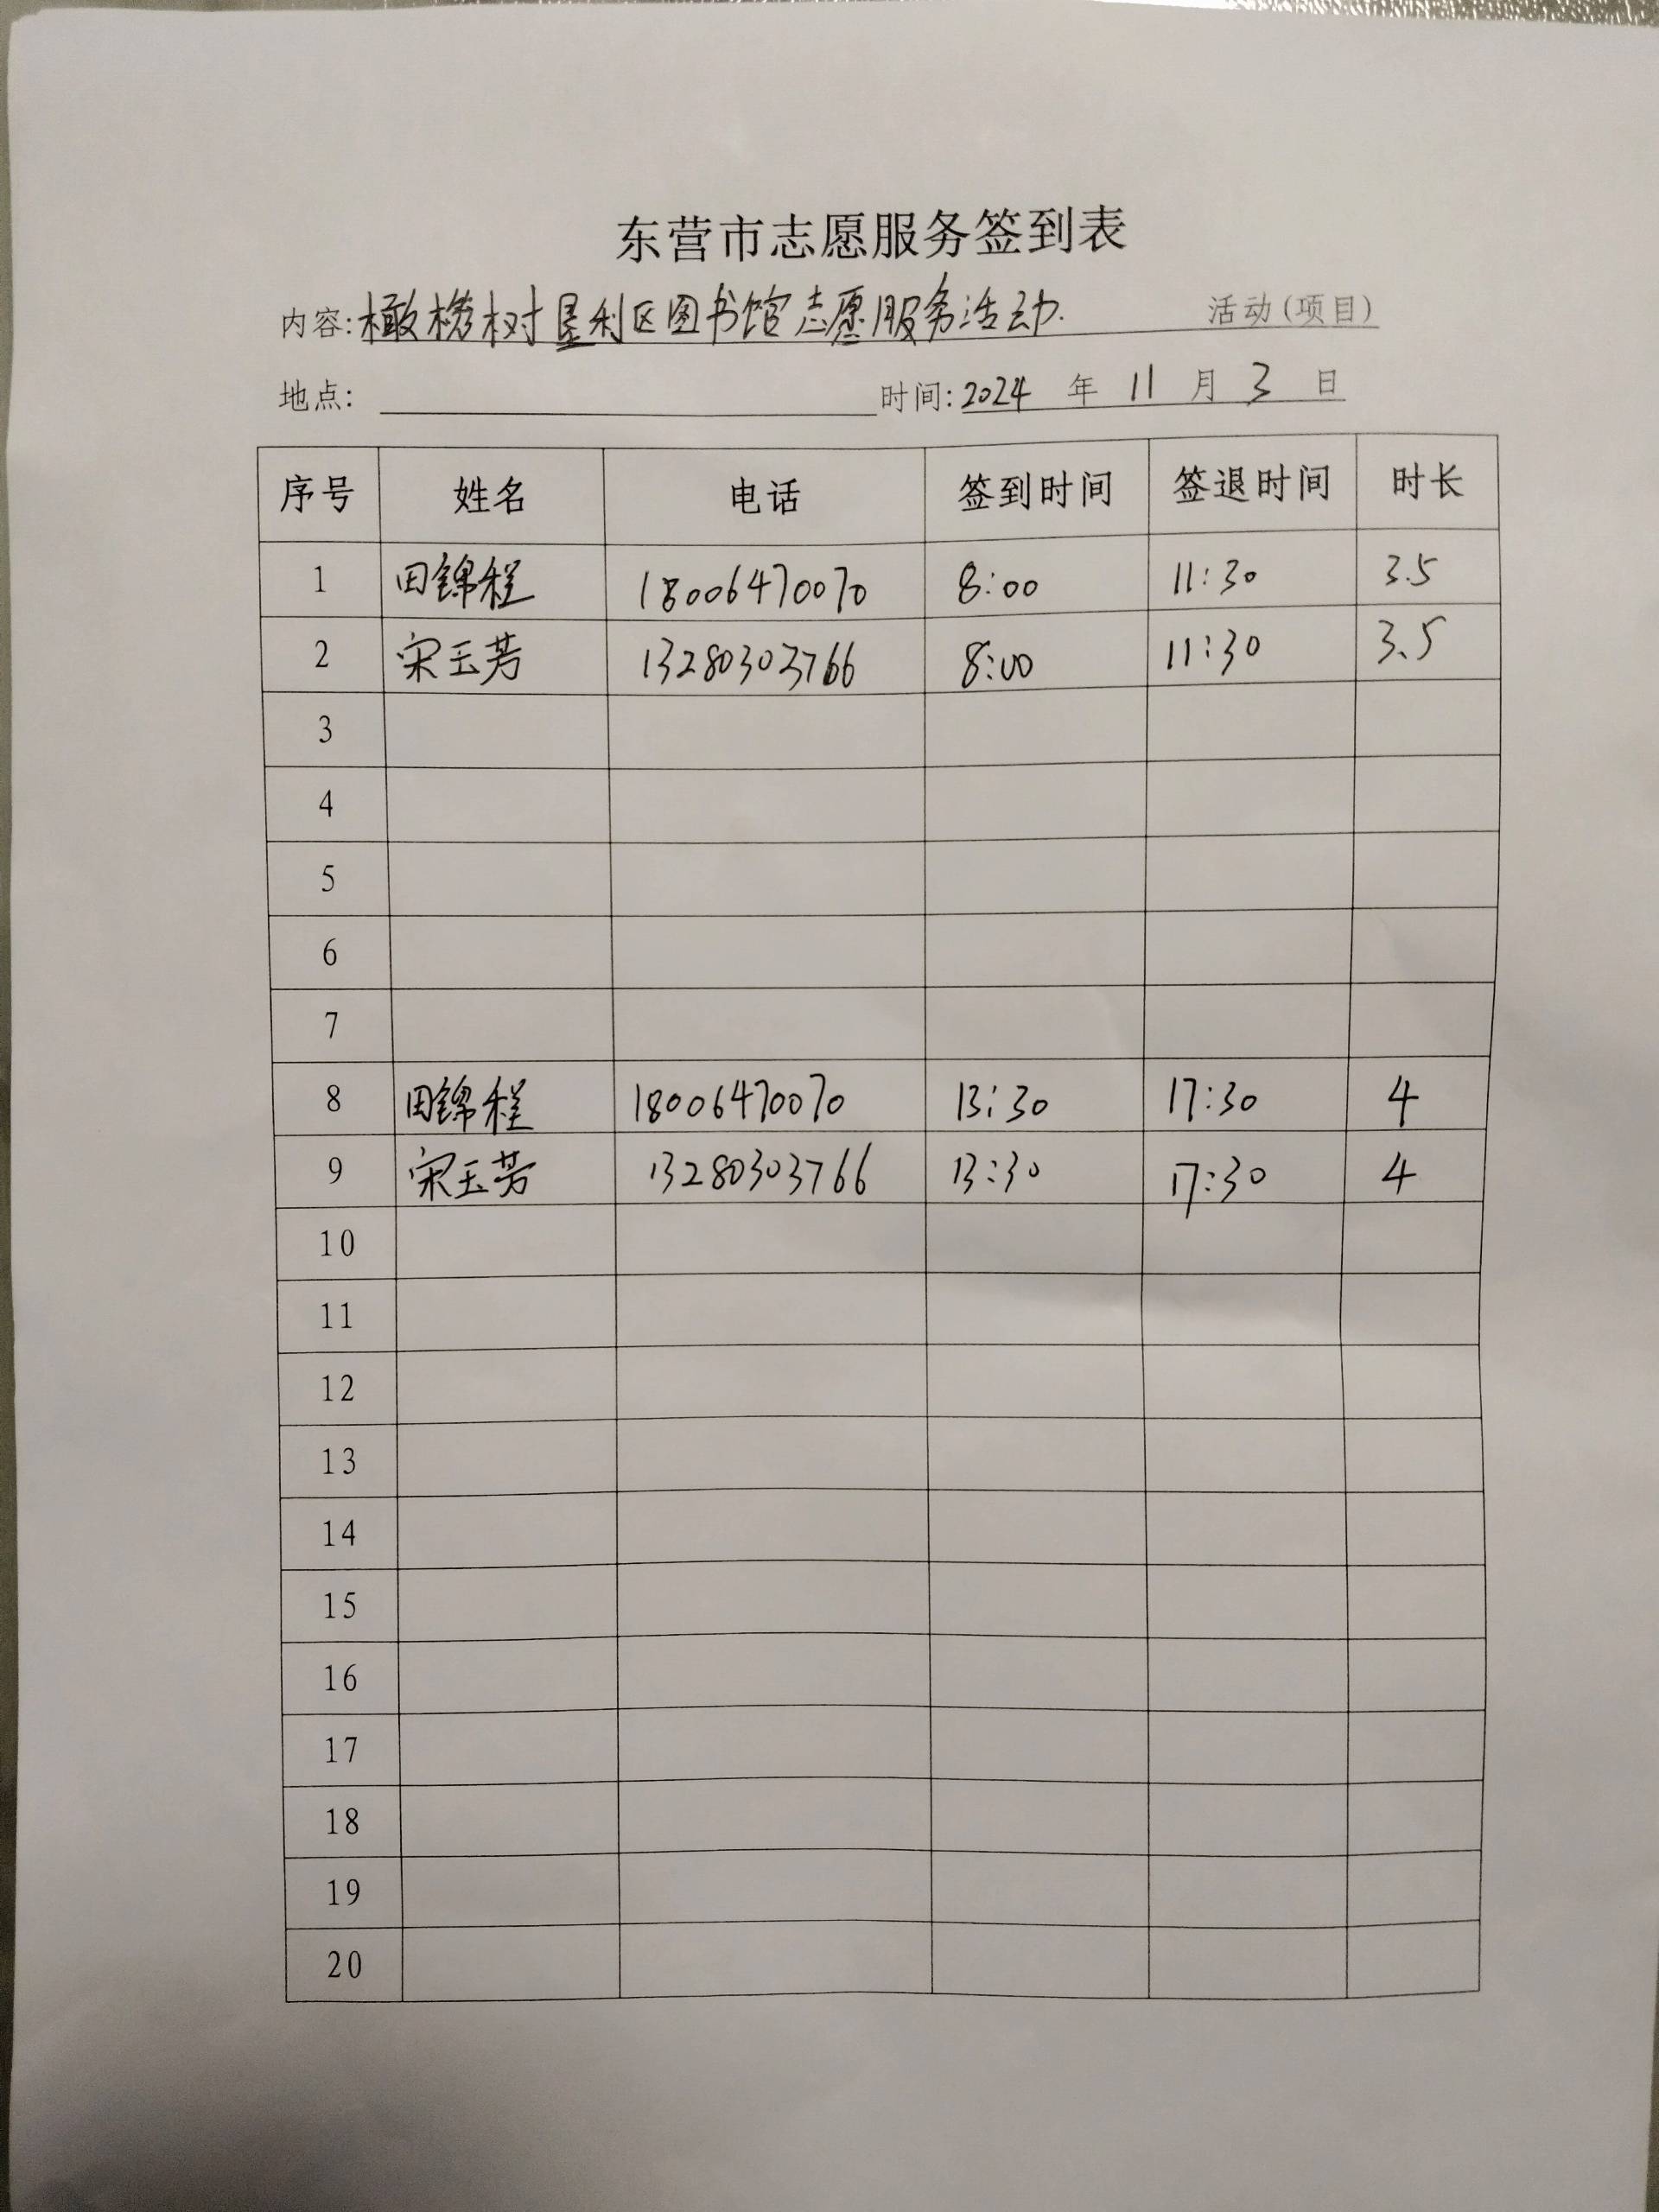 东营市志愿服务签到表
内容:橄榄树垦利区图书馆志愿服务活动. 活动(项目)
地点: 时间:2024 年 11 月 3 日
序号 姓名 电话 签到时间 签退时间 时长
1 田锦程 18006470070 8:00 11:30 3.5
2 宋玉芳 13280303766 8:00 11:30 3.5
3
4
5
6
7
8 田锦程 18006470070 13:30 17:30 4
9 宋玉芳 13280303766 13:30 17:30 4
10
11
12
13
14
15
16
17
18
19
20